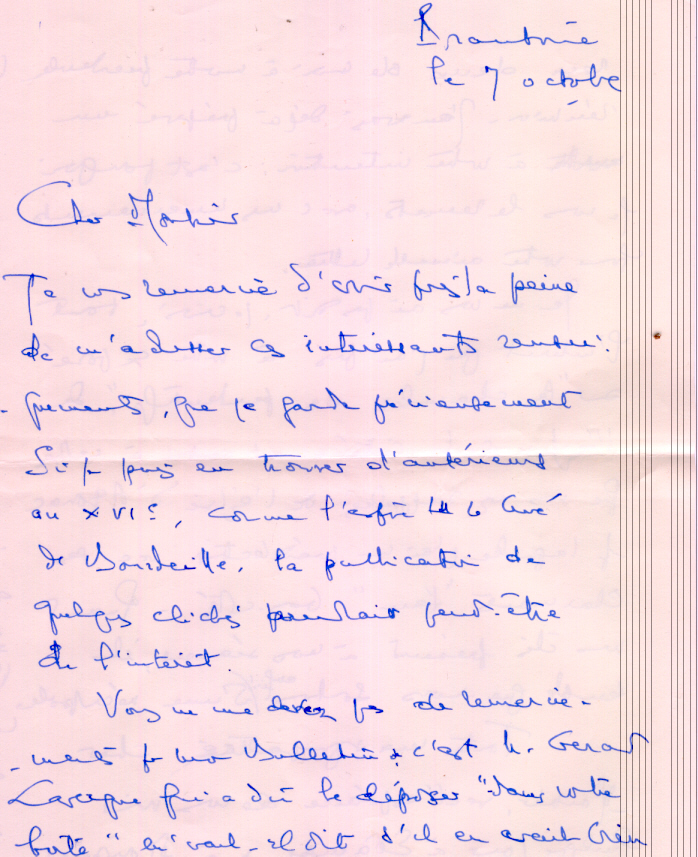 Brantôme
le 7 octobre
Cher Monsieur
Je vous remercie d'avoir pris la peine
de m'adresser ces intéressants rensei-
-gnements, que je garde précieusement
Si je puis en trouver d'antérieurs
au XVIe, comme l'espère le Curé
de Bourdeille, la publication de
quelques clichés prendrait peut-être
de l'intérêt.
Vous ne me devez pas de remercie-
-ments pr mon Bulletin : c'est M. Gérard
qui a dû le déposer "dans votre
boîte" m'avait-il dit s'il en avait